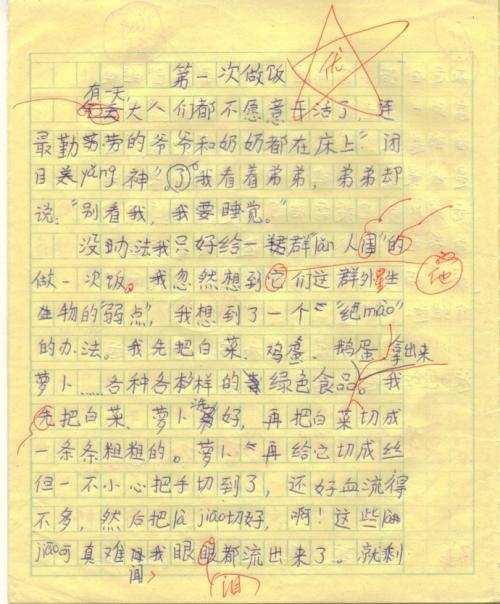 优
第一次做饭
有一天,
大人们都不愿意干活了,连
最勤劳的爷爷和奶奶都在床上“闭
目美yǎng神”。我看着弟弟,弟弟却
说:“别看我,我要睡觉。”
没办法我只好给一群“lǎn人国”的
做一次饭。我忽然想到它们这群外星
他
生物的“弱点”,我想到了一个“绝mào”
的办法。我先把白菜、鸡蛋、鹅蛋、拿出来
萝卜……各种各样的绿色食品。我
先把白菜、萝卜洗好,再把白菜切成
一条条粗粗的。萝卜再给它切成丝
但一不小心把手切到了,还好血流得
不多,然后把là jiāo切好,啊!这些là
jiāo可真难闻我眼都流出来了。就剩
(泪)